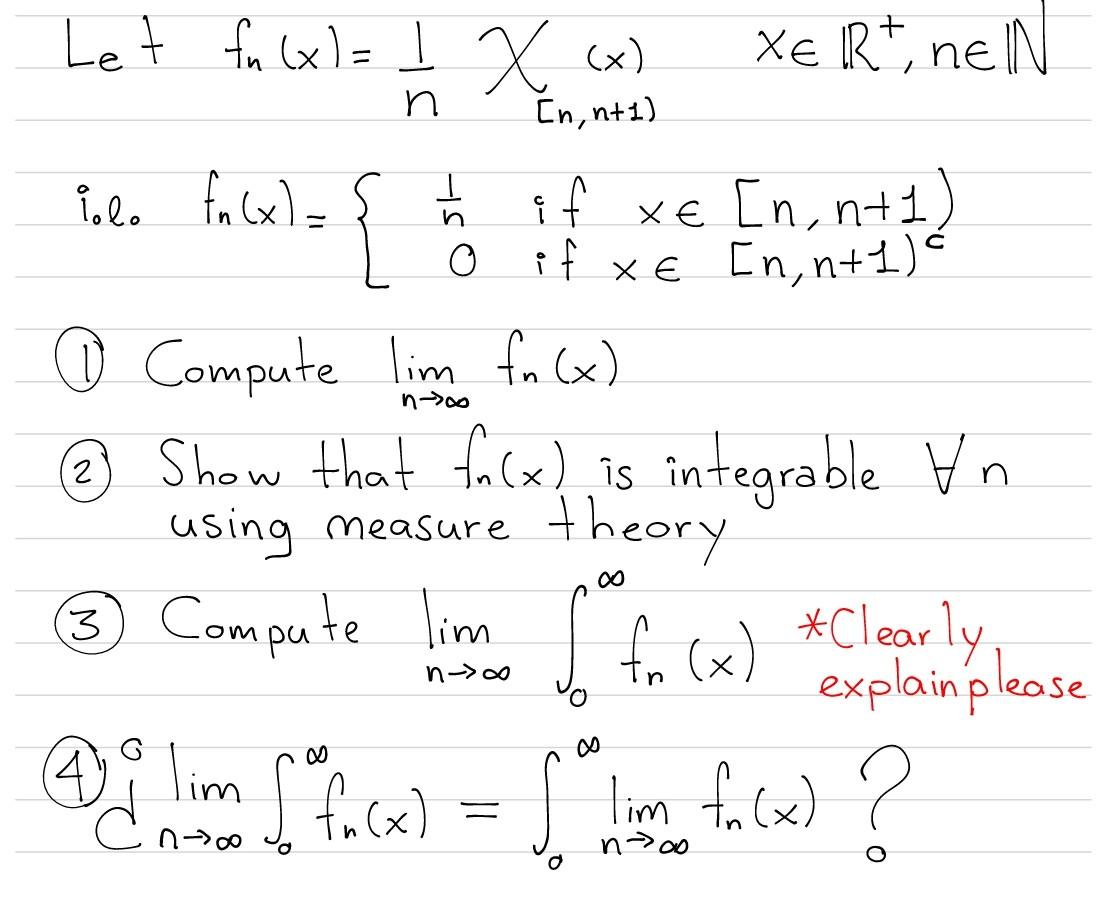 Let fn(x) = 1/n χ[n,n+1)(x) x∈ℝ⁺, n∈ℕ
i.e. fn(x) = { 1/n if x∈ [n,n+1)
0 if x∈ [n,n+1)ᶜ
① Compute lim n→∞ fn(x)
② Show that fn(x) is integrable ∀n
using measure theory
③ Compute lim n→∞ ∫₀^∞ fn(x) *Clearly
explain please
④ ¿ lim n→∞ ∫₀^∞ fn(x) = ∫₀^∞ lim n→∞ fn(x) ?